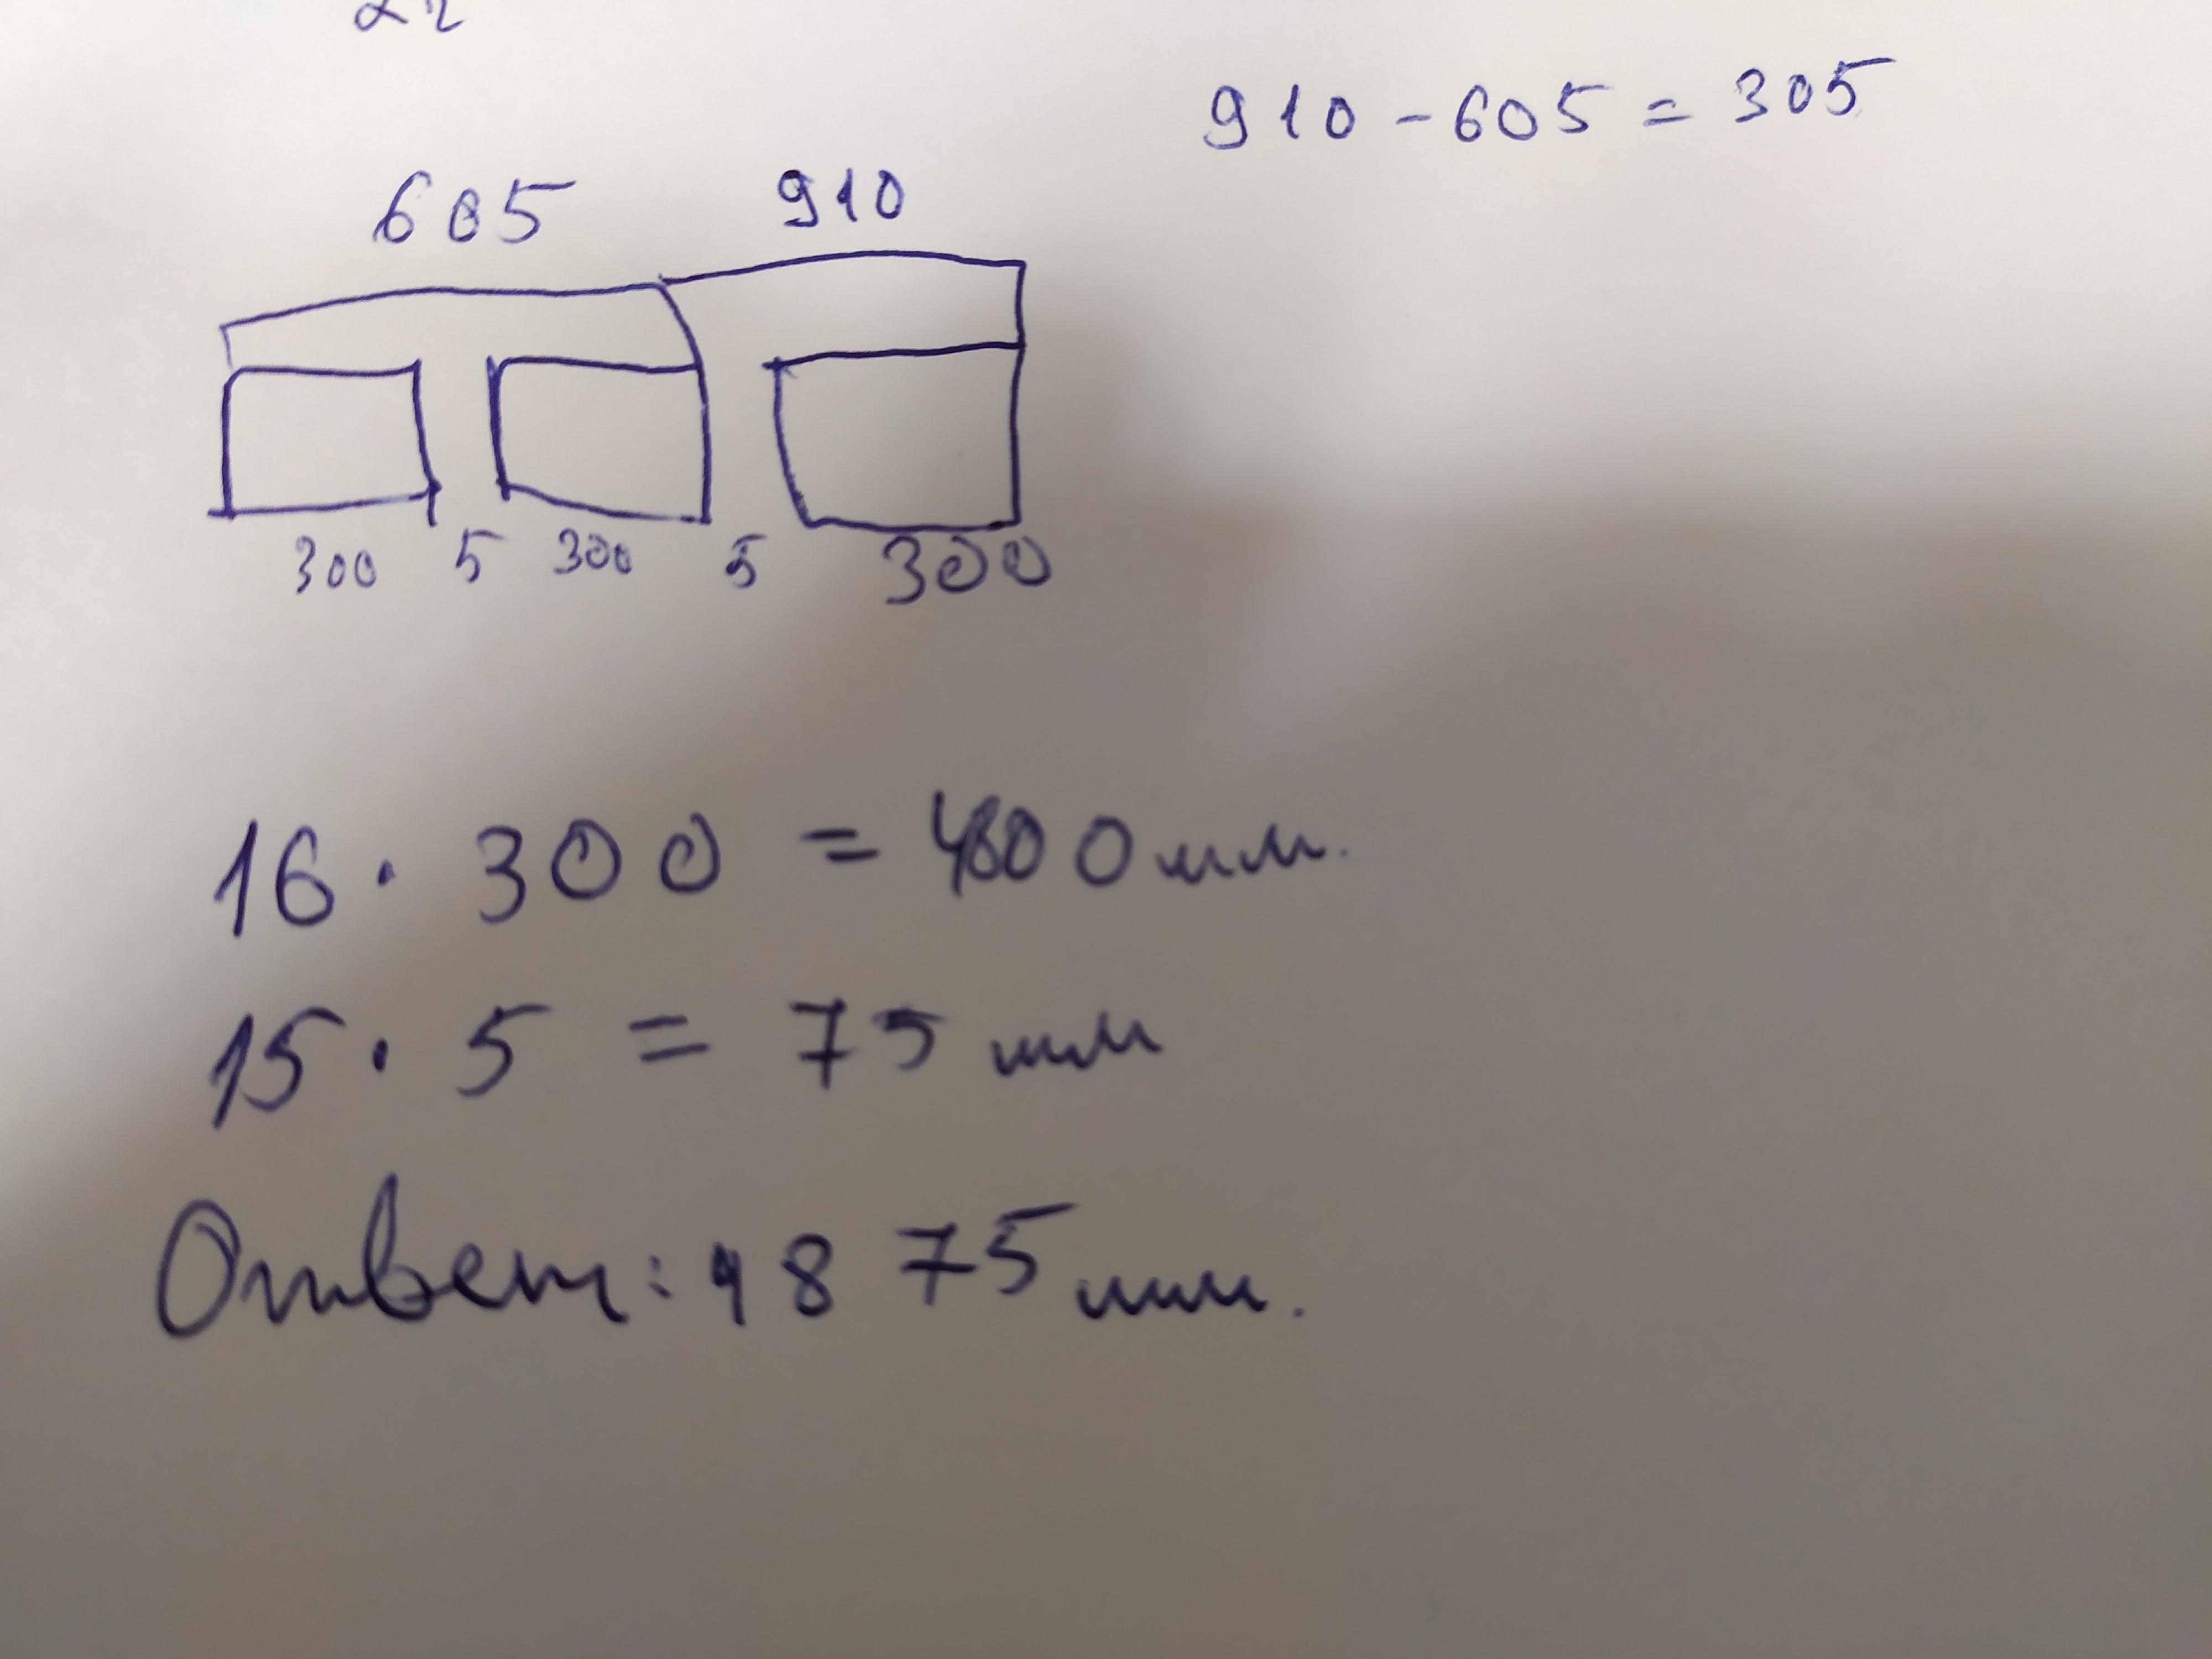 910 - 605 = 305
605 910
300 5 300 5 300
16 · 300 = 4800 мм.
15 · 5 = 75 мм
Ответ: 4875 мм.